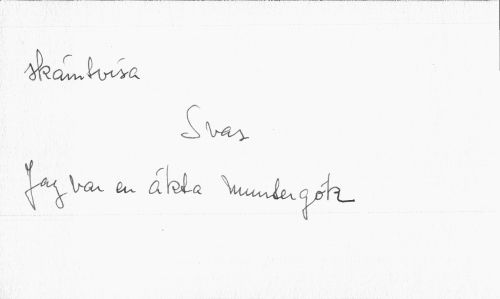 skämtvisa
Svar
Jag var en äkta muntergök